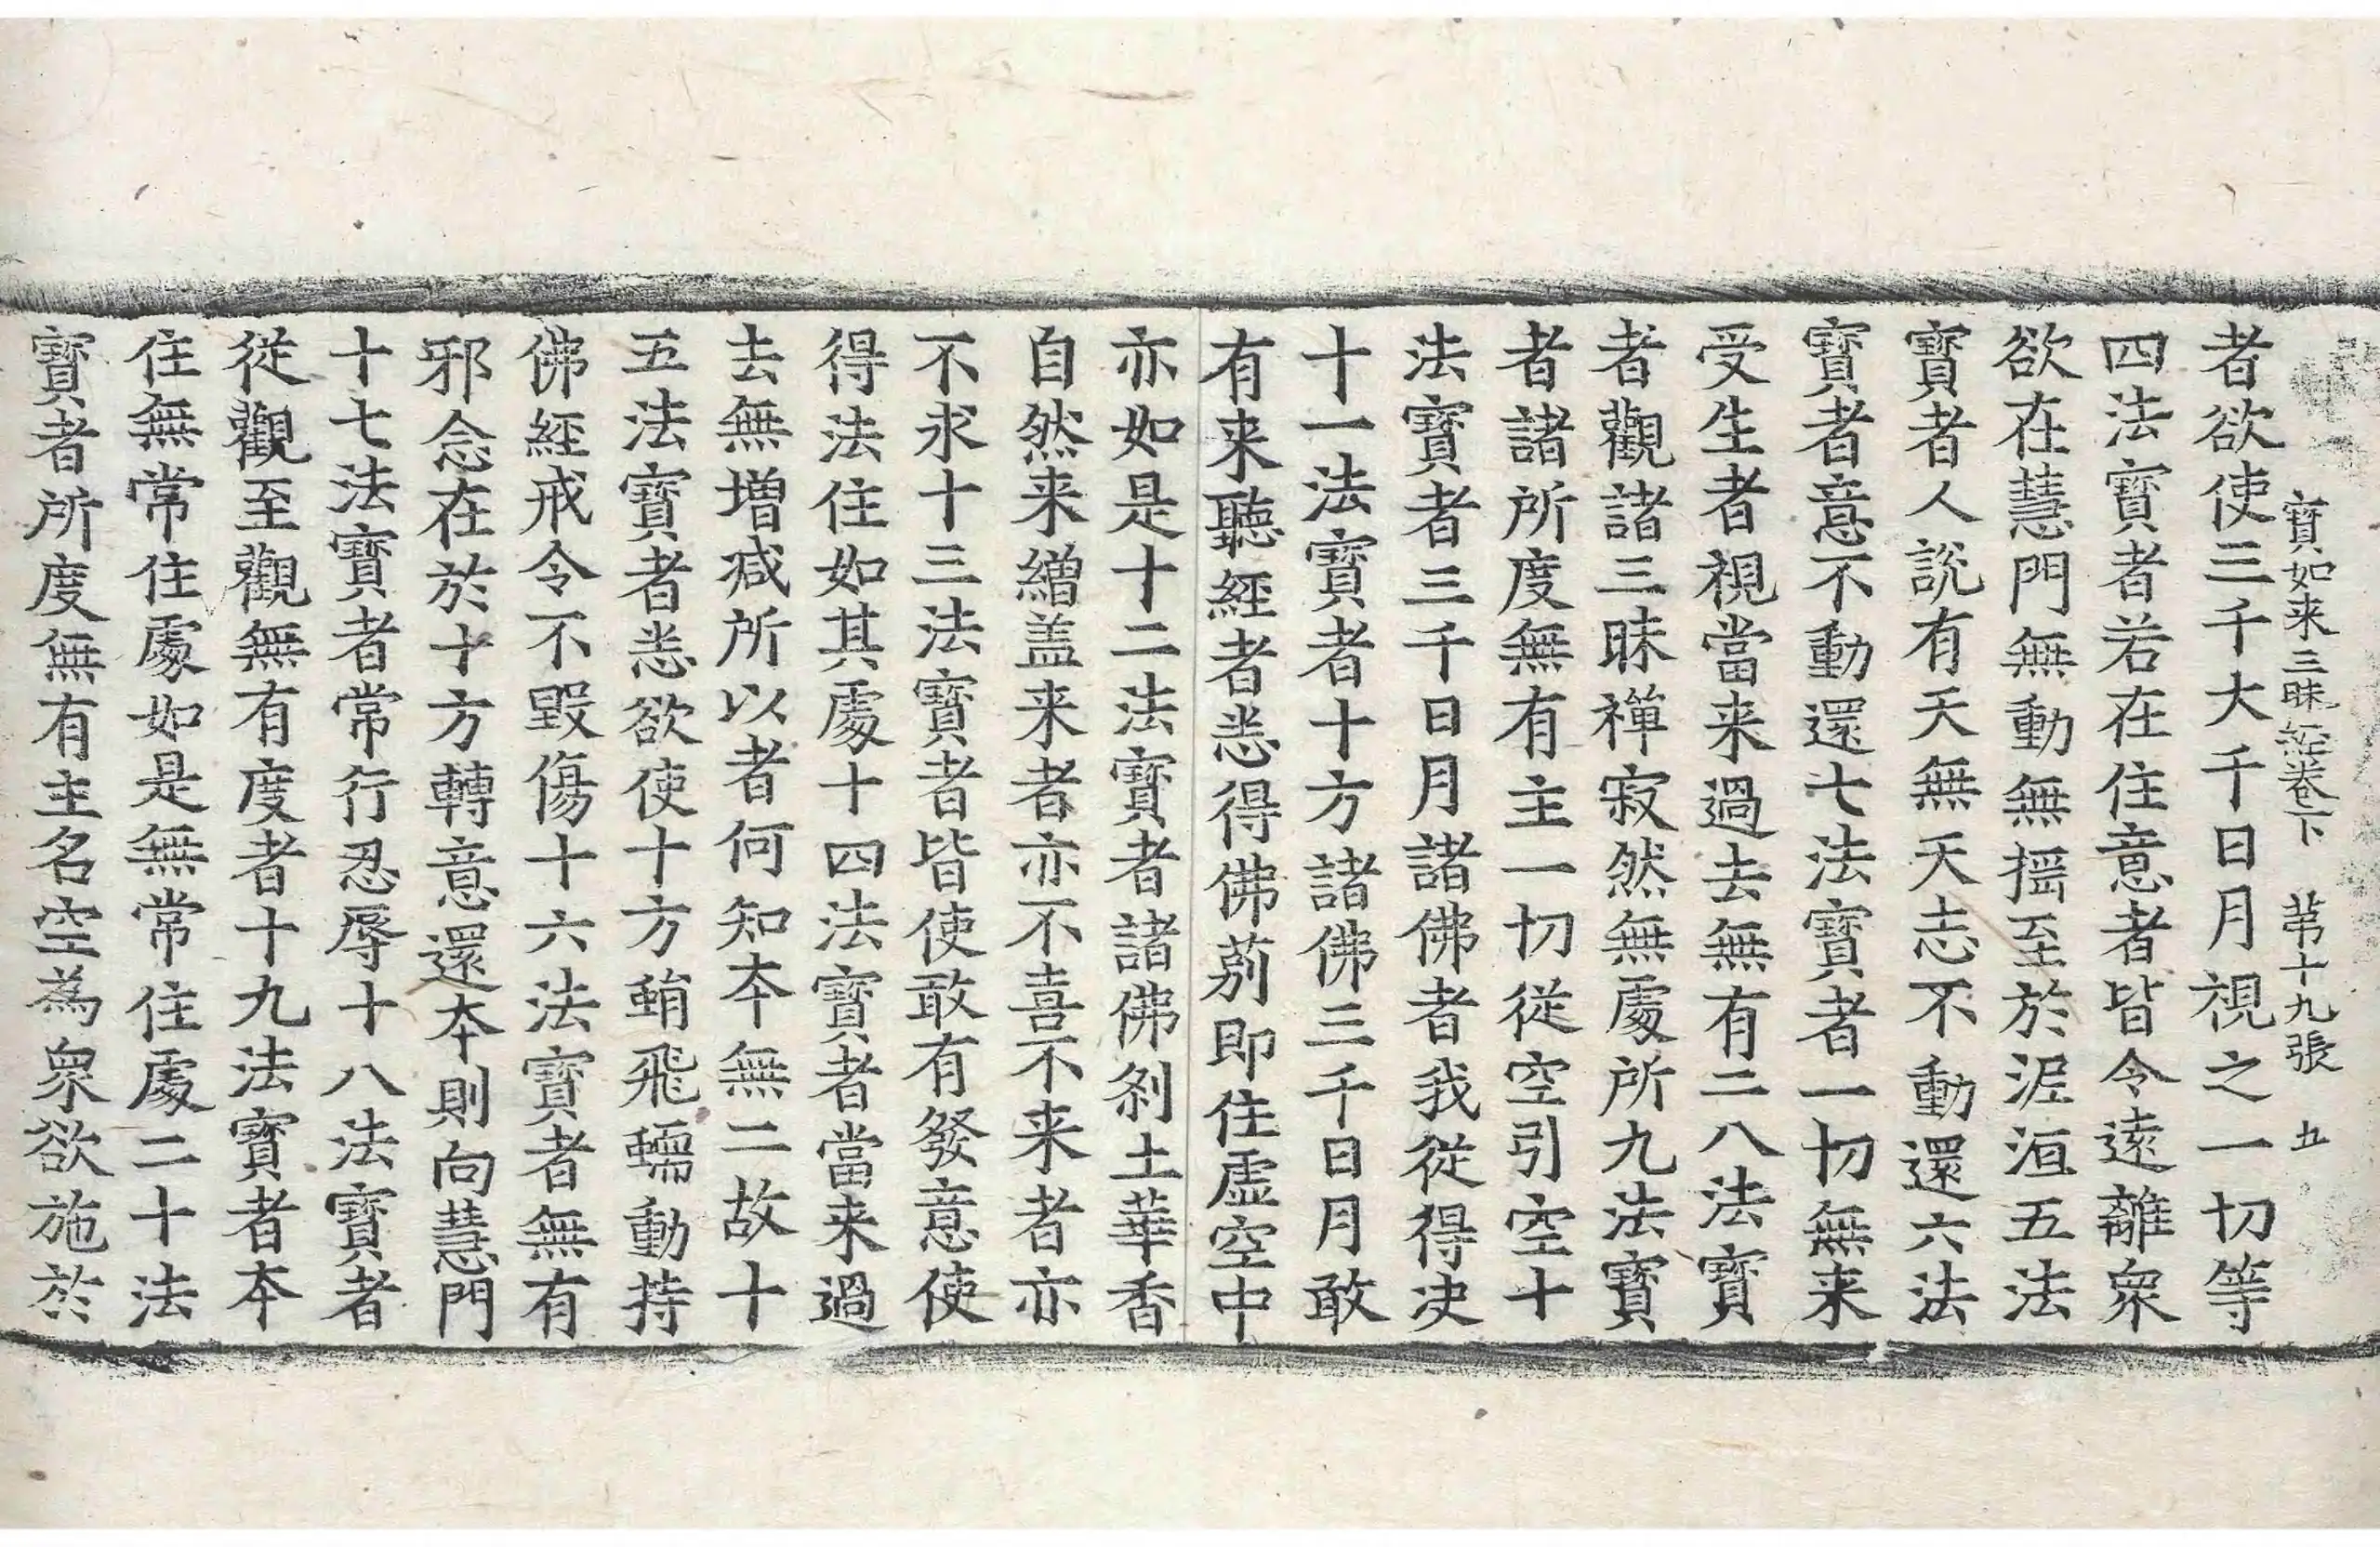 寶如来三昧經卷下 苐十九張 五
者欲使三千大千日月視之一切等
四法寶者若在住意者皆令遠離衆
欲在慧門無動無摇至於泥洹五法
寶者人說有天無天志不動還六法
寶者意不動還七法寶者一切無来
受生者視當来過去無有二八法寶
者觀諸三昧禪寂然無處所九法寶
者諸所度無有主一切從空引空十
法寶者三千日月諸佛者我從得决
十一法寶者十方諸佛三千日月敢
有来聽經者悉得佛莂即住虛空中
亦如是十二法寶者諸佛刹土華香
自然来繒盖来者亦不喜不来者亦
不求十三法寶者皆使敢有發意使
得法住如其處十四法寶者當来過
去無増减所以者何知本無二故十
五法寶者悉欲使十方蜎飛蠕動持
佛經戒令不毀傷十六法寶者無有
邪念在於十方轉意還本則向慧門
十七法寶者常行忍辱十八法寶者
從觀至觀無有度者十九法寶者本
住無常住處如是無常住處二十法
寶者所度無有主名空為衆欲施於